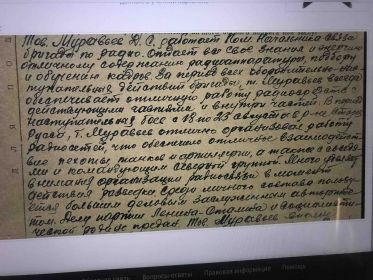 Тов. Муравьев Д. С. работает Пом. Начальника связи
бригады по радио. Отдает все свое знания и энергию
отличному содержанию радиоаппаратуры, подбору
и обучению кадров. За период всех оборонительно-нас-
тупательных действий бригады т. Муравьев всегда
обеспечивает отличную работу радиосредств с
действующими частями и внутри частей. В период
наступательных боев с 18 по 23 августа в р-не
Руса, т. Муравьев отлично организовал работу
радиосетей, что обеспечило отличное взаимодейст-
вие пехоты, танков и артиллерии, а также с соседя-
ми и командующим северной группой. Много уделял
внимания организации радиосвязи в момент
действия разведки. Среди личного состава пользу-
ется большим деловым заслуженным авторите-
том. Делу партии Ленина-Сталина и социалисти-
ческой родине предан. Тов. Муравьев
Вопросы-ответы Правовая информация Помощь